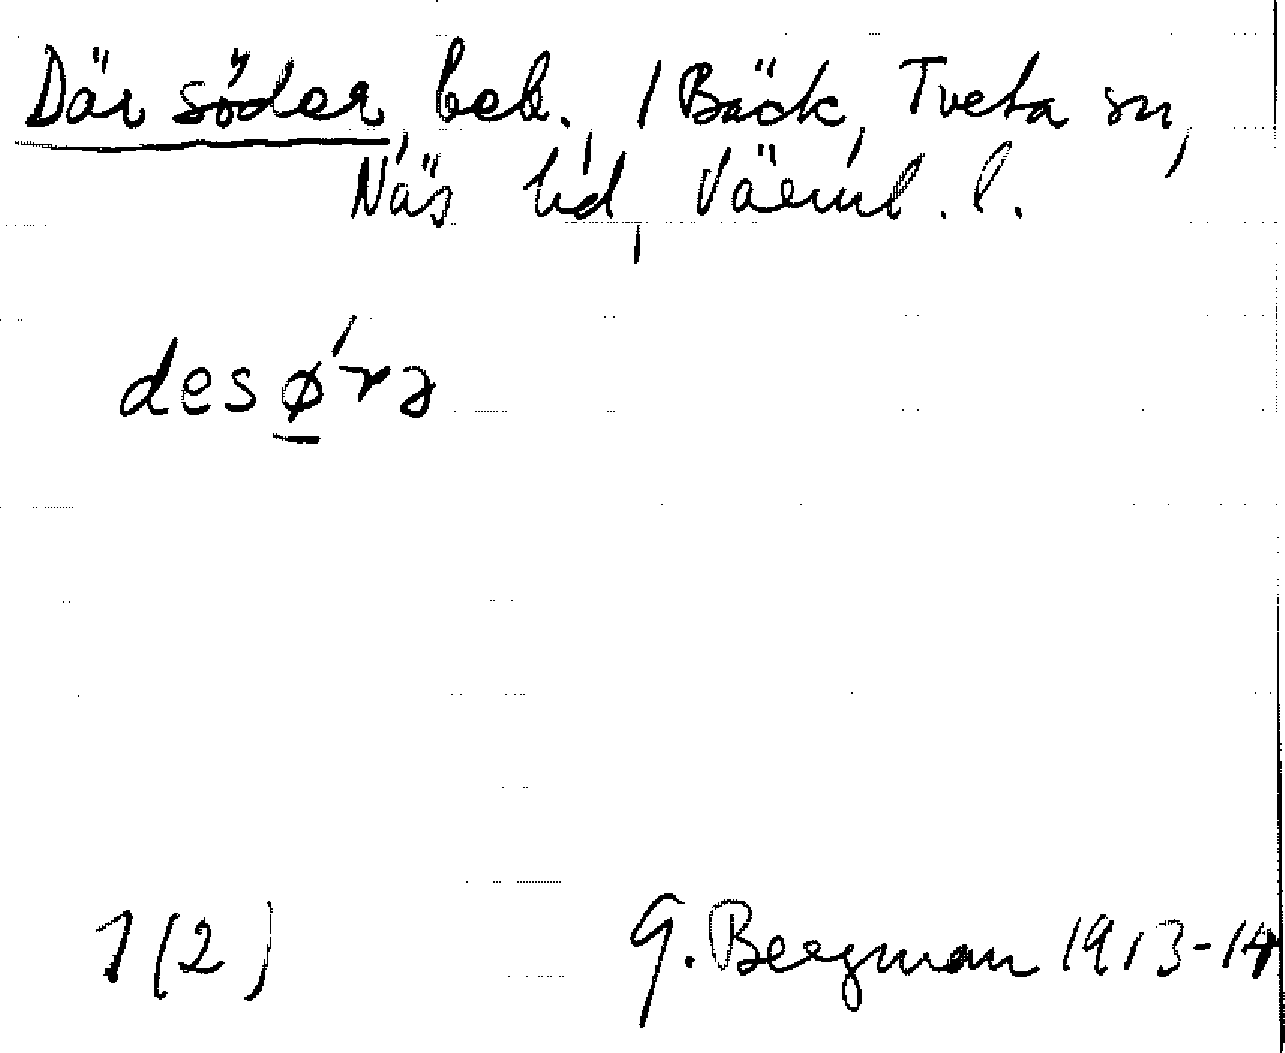 Där söder, beb., / Bäck, Tveta sn,
Näs hd, Värml. l.
desø´rə
1 (2) G. Bergman 1913-14